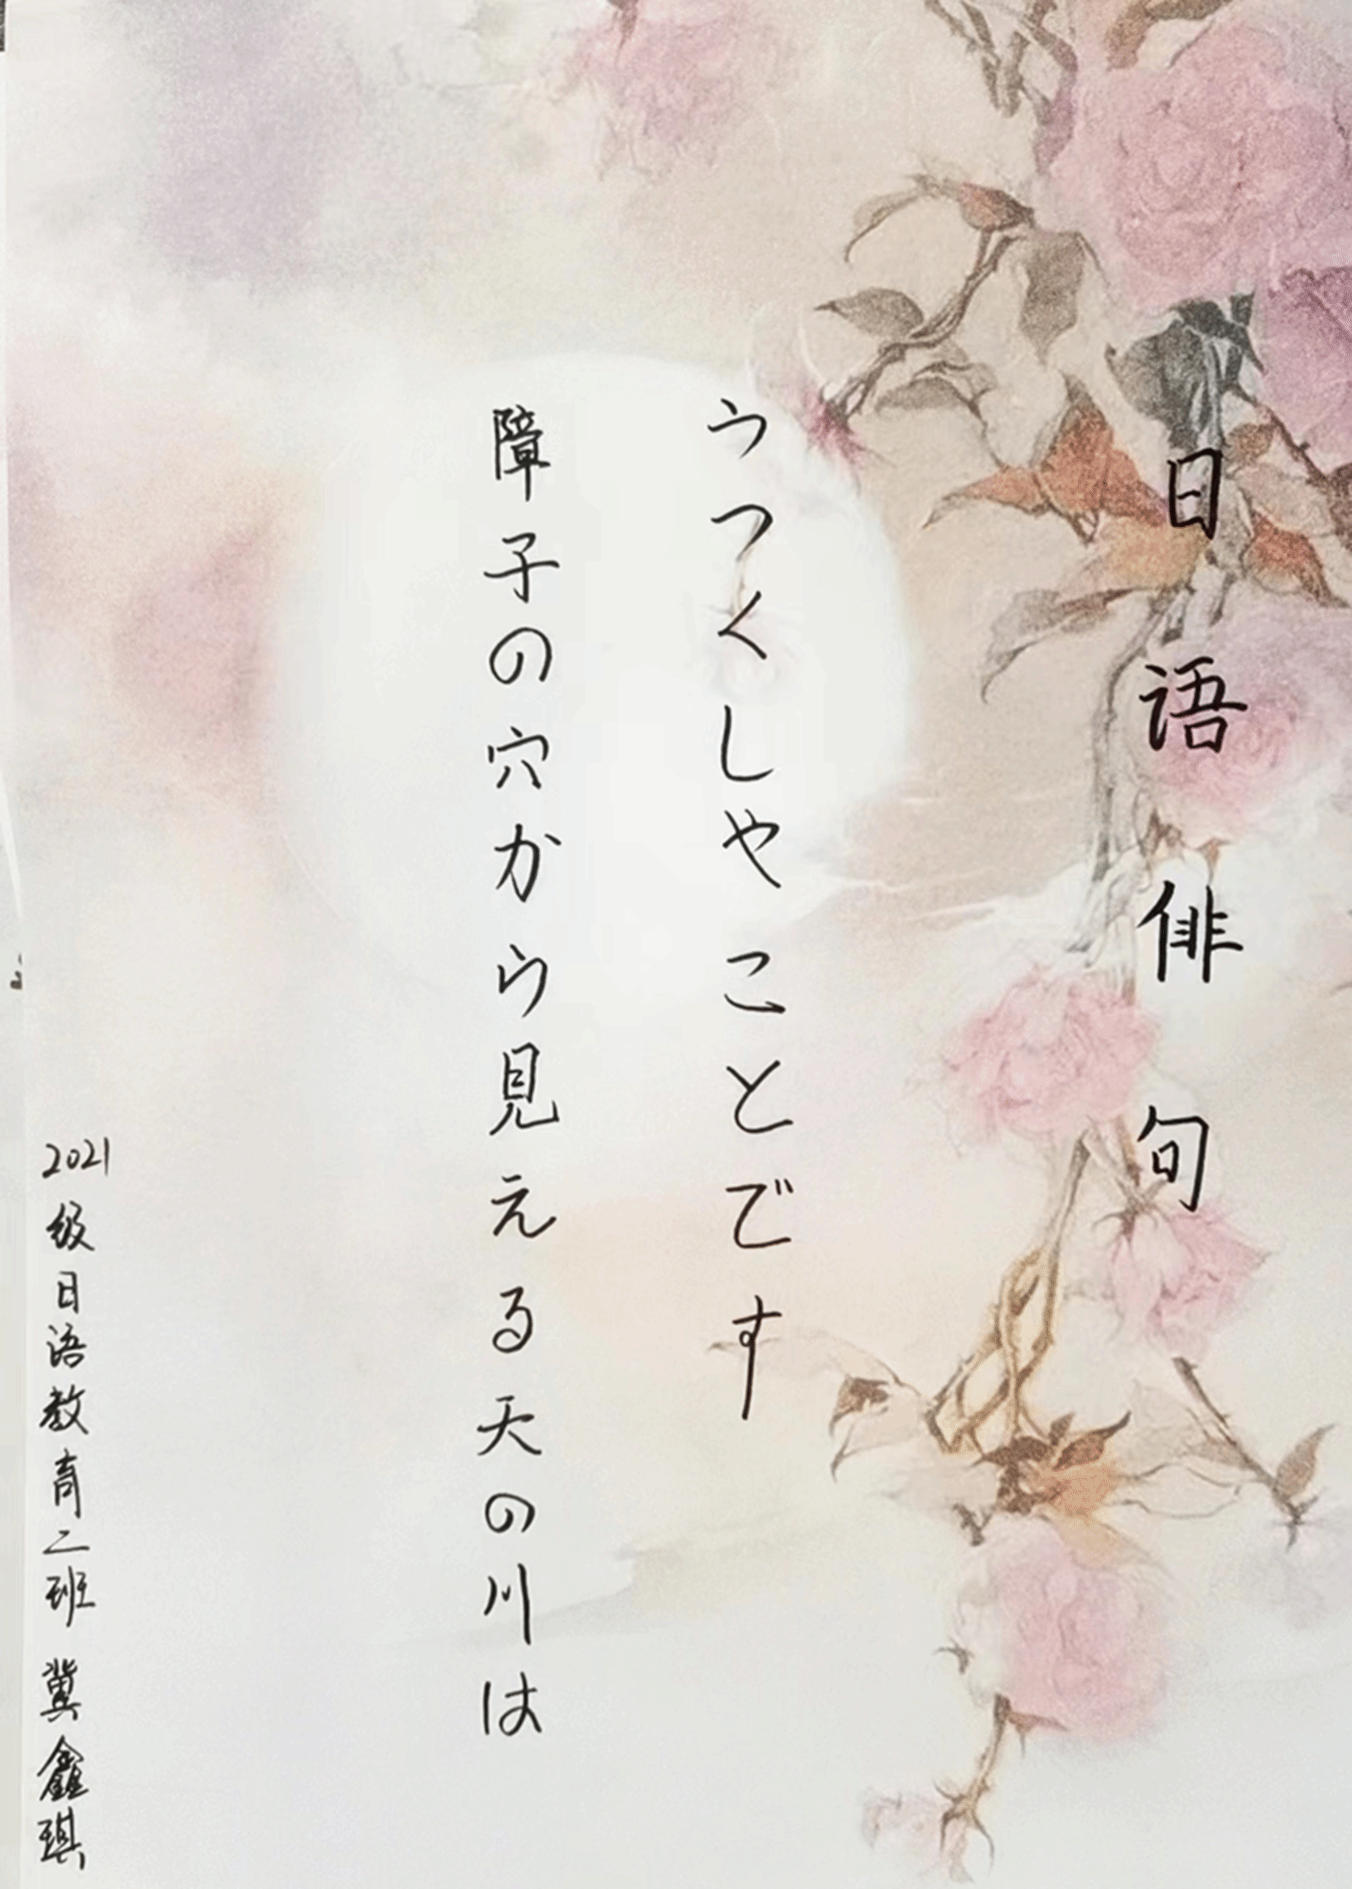 日语俳句
うつくしやことです
障子の穴から見える天の川は
2021级日语教育二班 冀鑫琪